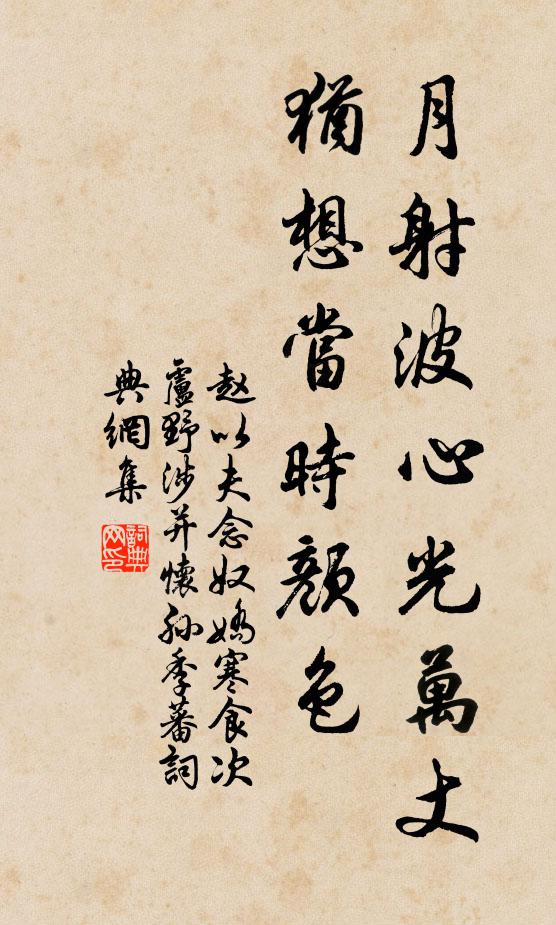 月射波心光萬丈
猶想當時顏色
赵以夫念奴嬌寒食次
盧野涉并懷孙季蕃詞
典網集
詞典
网印